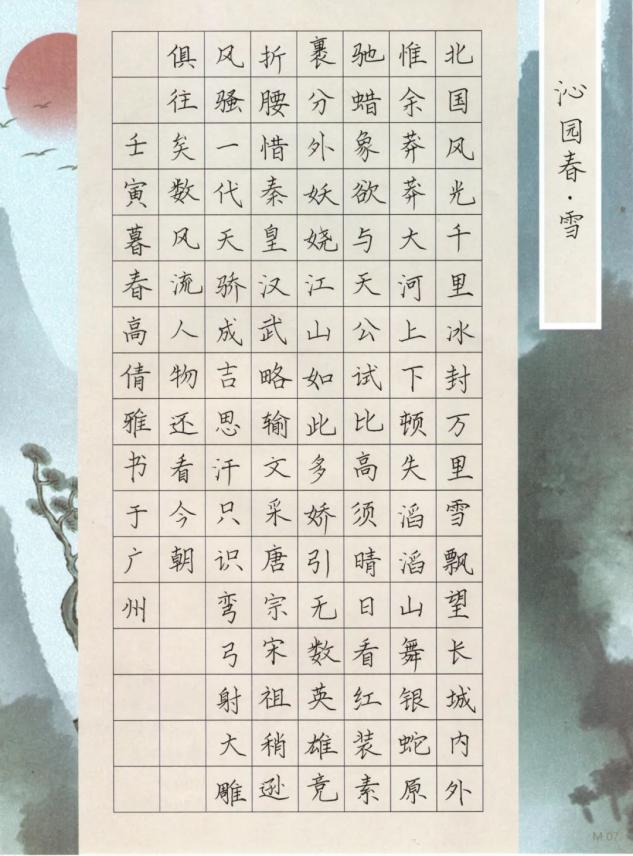 沁园春·雪
北国风光千里冰封万里雪飘望长城内外
惟余莽莽大河上下顿失滔滔山舞银蛇原
驰蜡象欲与天公试比高须晴日看红装素
裹分外妖娆江山如此多娇引无数英雄竞
折腰惜秦皇汉武略输文采唐宗宋祖稍逊
风骚一代天骄成吉思汗只识弯弓射大雕
俱往矣数风流人物还看今朝
壬寅暮春高倩雅书于广州
M 07